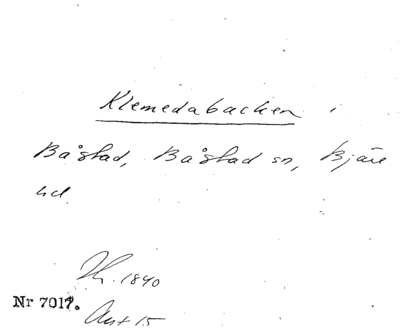 Klemedabacken
Båstad, Båstad sn, Bjäre
hd.
Th. 1840
Nr 7017.
Ant 15